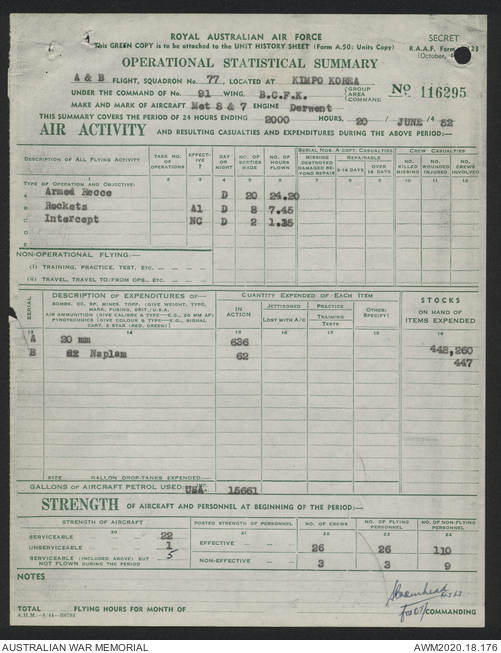 ROYAL AUSTRALIAN AIR FORCE
SECRET
This GREEN COPY is to be attached to the UNIT HISTORY SHEET (Form A.50: Units Copy)
R.A.A.F. Form 123
(October,
OPERATIONAL STATISTICAL SUMMARY
A & B FLIGHT, SQUADRON No. 77, LOCATED AT KIMPO KOREA
UNDER THE COMMAND OF No. 91 WING, B.C.F.K. (GROUP AREA COMMAND No 116295
MAKE AND MARK OF AIRCRAFT Met 8 & 7 ENGINE Derwent
THIS SUMMARY COVERS THE PERIOD OF 24 HOURS ENDING 2000 HOURS, 20 / JUNE / 52
AIR ACTIVITY AND RESULTING CASUALTIES AND EXPENDITURES DURING THE ABOVE PERIOD:—
DESCRIPTION OF ALL FLYING ACTIVITY TASK NO. OF OPERATIONS EFFECTIVE ? DAY OR NIGHT NO. OF SORTIES MADE NO. OF HOURS FLOWN SERIAL NOS. A'CRFT. CASUALTIES CREW CASUALTIES
MISSING DESTROYED DAMAGED BEYOND REPAIR REPAIRABLE 2-14 DAYS OVER 14 DAYS NO. KILLED MISSING NO. WOUNDED INJURED NO. CREWS INVOLVED
1 2 3 4 5 6 7 8 9 10 11 12
TYPE OF OPERATION AND OBJECTIVE:
A Armed Recce D 20 24.20
B Rockets A1 D 8 7.45
C Intercept NC D 2 1.35
D
E
NON-OPERATIONAL FLYING:—
(I) TRAINING, PRACTICE, TEST, ETC.
(II) TRAVEL, TRAVEL TO/FROM OPS., ETC.
SERIAL DESCRIPTION OF EXPENDITURES OF:— QUANTITY EXPENDED OF EACH ITEM STOCKS ON HAND OF ITEMS EXPENDED
BOMBS, DC, RP, MINES, TORP. (GIVE WEIGHT, TYPE, MARK, FUSING, BRIT./U.S.A.
AIR AMMUNITION (GIVE CALIBRE & TYPE—E.G., 20 MM AP)
PYROTECHNICS (GIVE COLOUR & TYPE—E.G., SIGNAL CART. 2 STAR (RED, GREEN)
IN ACTION JETTISONED LOST WITH A/C PRACTICE TRAINING TESTS OTHER: SPECIFY)
13 14 15 16 17 18 19
A 20 mm 636 442,260
B Naplam 62 447
SIZE GALLON DROP-TANKS EXPENDED:—
GALLONS OF AIRCRAFT PETROL USED: USA 15661
STRENGTH OF AIRCRAFT AND PERSONNEL AT BEGINNING OF THE PERIOD:—
STRENGTH OF AIRCRAFT POSTED STRENGTH OF PERSONNEL NO. OF CREWS NO. OF FLYING PERSONNEL NO. OF NON-FLYING PERSONNEL
20 21 22 23 24
SERVICEABLE 22
UNSERVICEABLE 1
SERVICEABLE (INCLUDED ABOVE) BUT NOT FLOWN DURING THE PERIOD 5
EFFECTIVE — 26 26 110
NON-EFFECTIVE — 3 3 9
NOTES
TOTAL FLYING HOURS FOR MONTH OF
COMMANDING
AUSTRALIAN WAR MEMORIAL
AWM2020.18.176